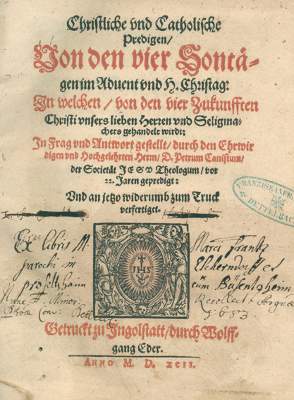 Christliche vnd Catholische
Predigen/
Von den vier Sontä-
gen im Aduent vnd H. Christag:
In welchen/ von den vier Zukunfften
Christi vnsers lieben Herren vnd Seligma-
chers gehandelt wirdt:
In Frag vnd Antwort gestellt/ durch den Ehrwir
digen vnd Hochgelehrten Herrn/ D. Petrum Canisium/
der Societät IESV Theologum/ vor
22. Jaren geprediget:
Vnd an jetzo widerumb zum Truck
verfertiget.
Ex libris M
parochi in
Marci Frantz
1653
IHS
FRANZISKANER
DETTELBACH
Getruckt zu Ingolstatt/ durch Wolff-
gang Eder.
ANNO M. D. XCII.